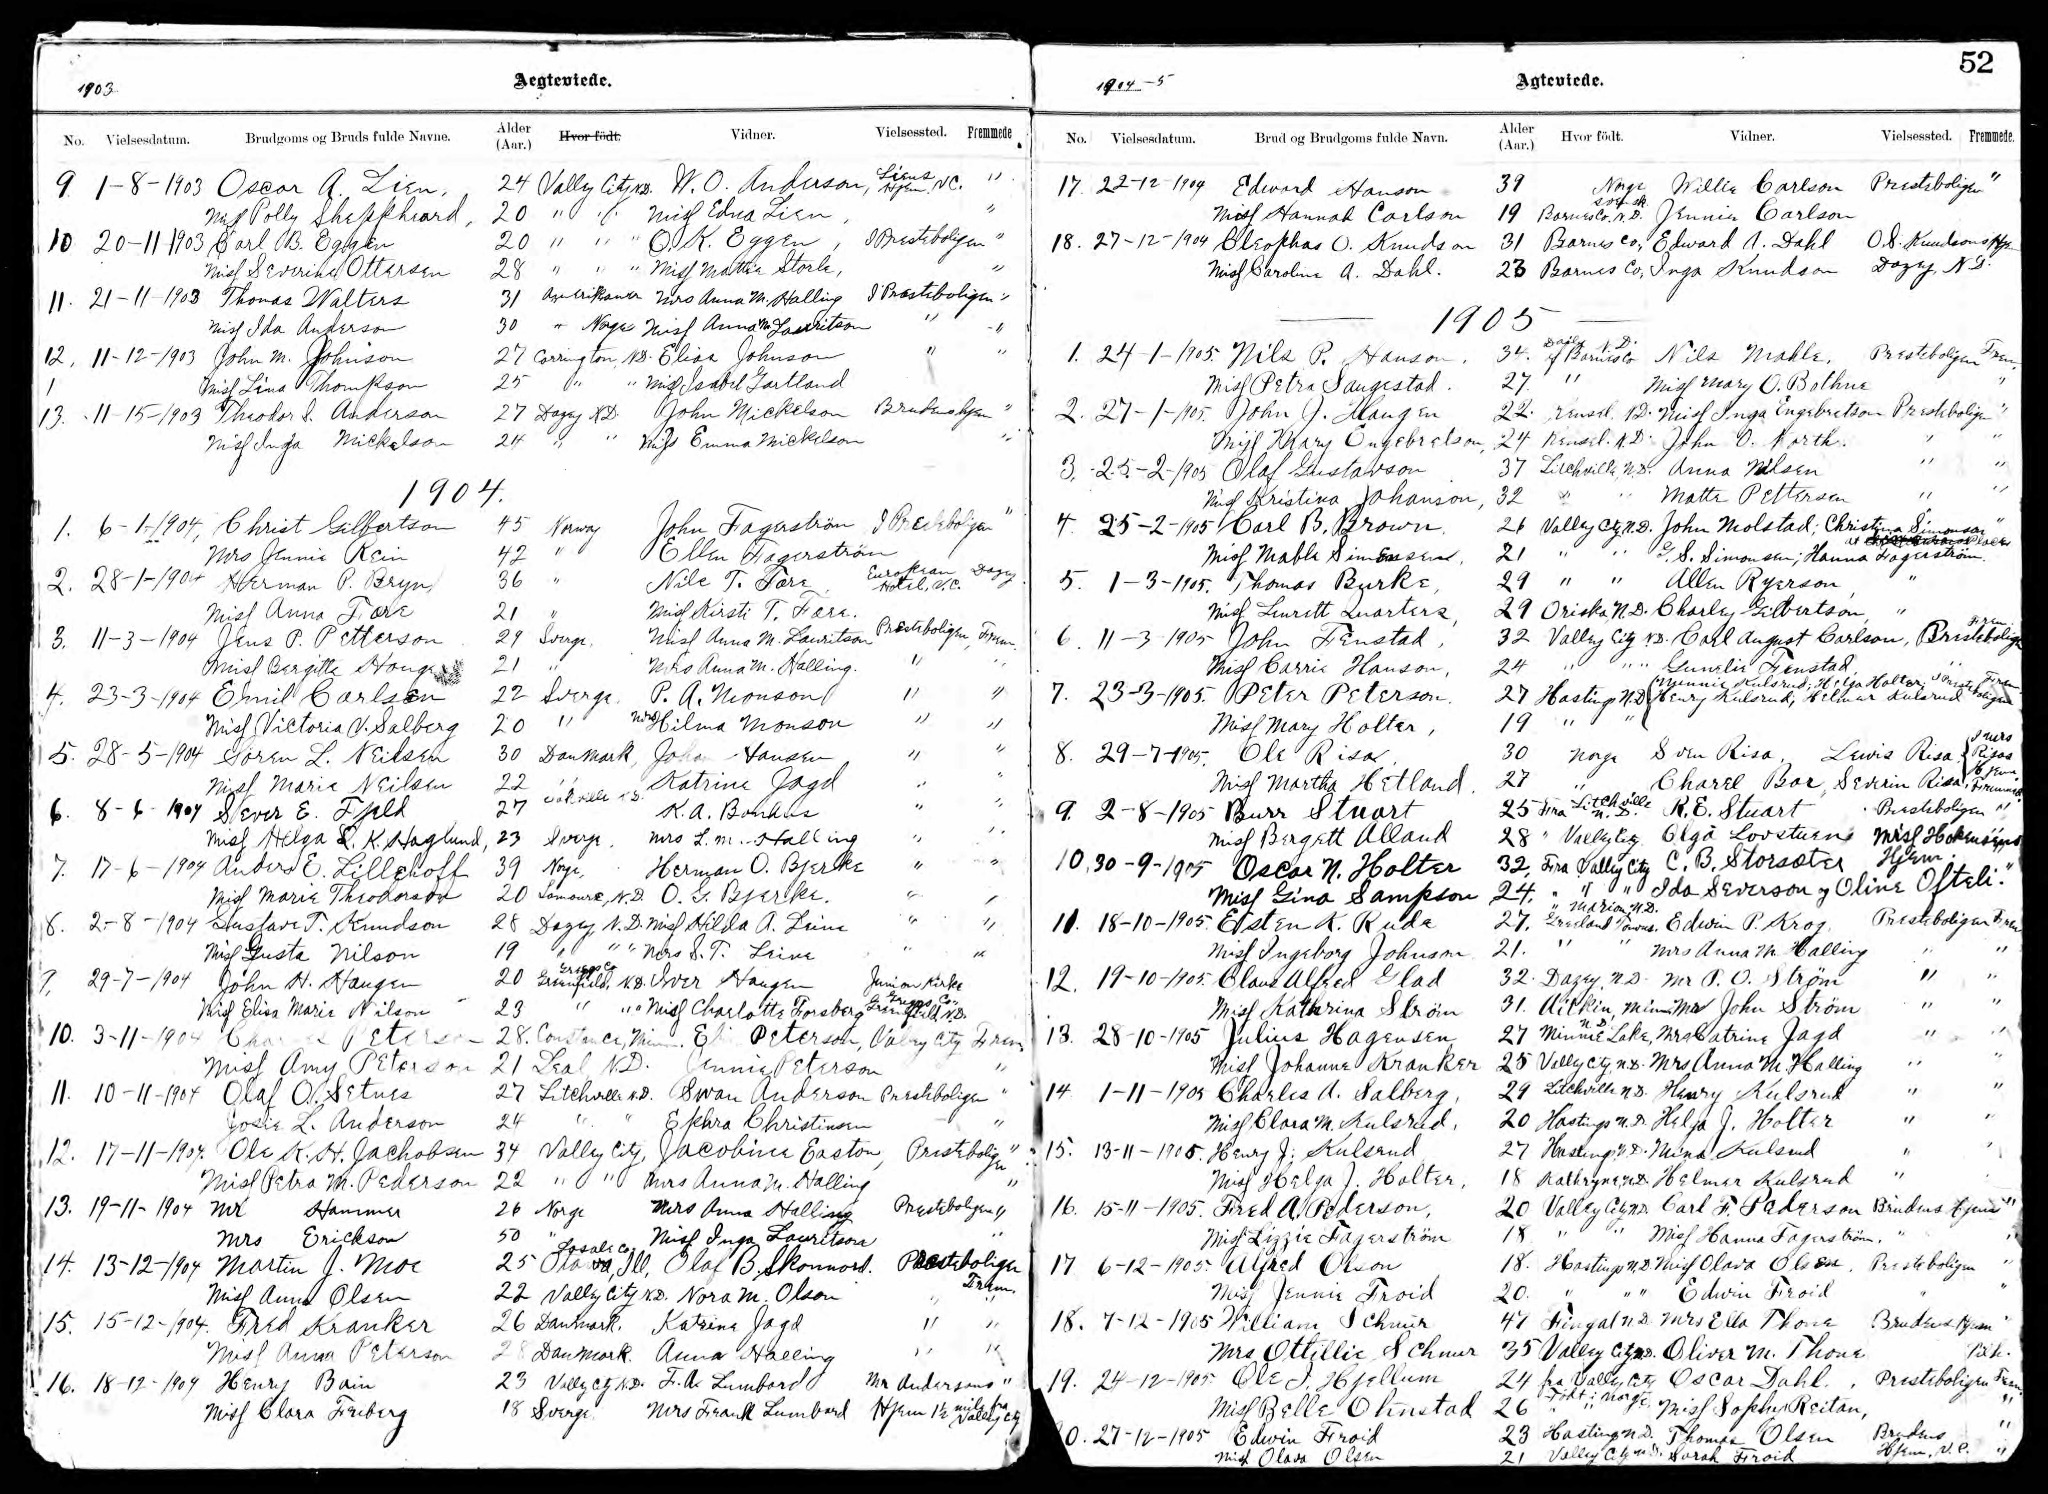 1903
Aegteviede.
No. Vielsesdatum. Brudgoms og Bruds fulde Navne. Alder (Aar.) Hvor födt. Vidner. Vielsessted. Fremmede
9 1-8-1903 Oscar A. Lien, 24 Valley City, N.D. W. O. Anderson, Liens Hjem, V.C. "
Miss Polly Sheppheard, 20 " " Miss Edna Lien, "
10 20-11-1903 Carl B. Eggen 20 " " " O. K. Eggen, I Presteboligen "
Miss Severine Ottersen 28 " " " Miss Mattie Storle, "
11. 21-11-1903 Thomas Walters 31 Amerikaner Mrs Anna M. Halling I Presteboligen "
Miss Ida Anderson 30 " Norge Miss Anna M. Lauritson " "
12. 11-12-1903 John M. Johnson 27 Carrington, N.D. Elisa Johnson " "
Miss Lina Thompson 25 " " Miss Isabel Gartland
13. 11-15-1903 Theodor S. Anderson 27 Dazey N.D. John Mickelson Brudens hjem "
Miss Inga Mickelson 24 " " Miss Emma Mickelson "
1904.
1. 6-1-1904, Christ Gilbertson 45 Norway John Fagerström I Presteboligen "
Mrs Jennie Rein 42 " Ellen Fagerström
2. 28-1-1904 Herman P. Bryn, 36 " Nils T. Fore, European Hotel, V.C. Dazey
Miss Anna Fore 21 " Miss Kirsti T. Fore.
3. 11-3-1904 Jens P. Petterson 29 Sverge, Miss Anna M. Lauritson Presteboligen, Frem.
Miss Bergitte Houge 21 " Mrs Anna M. Halling. " "
4. 23-3-1904 Emil Carlsen 22 Sverge. P. A. Monson " "
Miss Victoria V. Salberg 20 " Mrs Hilma Monson " "
5. 28-5-1904 Sören L. Neilsen 30 Danmark, Hansen " "
Miss Marie Neilsen 22 " Katrine Jagd " "
6. 8-6-1904 Sever E. Fjeld 27 N.D. K. A. Bonhus " "
Miss Helga S. K. Haglund, 23 Sverge. Mrs L. M. Halling " "
7. 17-6-1904 Anders E. Lillehoff 39 Norge, Herman O. Bjerke " "
Miss Marie Theodorson 20 Lamoure, N.D. O. G. Bjerke. " "
8. 2-8-1904 Gustave T. Knudson 28 Dazey, N.D. Miss Hilda A. Leine " "
Miss Gusta Nilson 19 " " " Mrs S. T. Leine " "
9. 29-7-1904 John H. Haugen 20 Greenfield, Griggs Co. N.D. Iver Haugen Junion Kirke
Miss Elisa Marie Nilson 23 " " " Miss Charlotte Forsberg Griggs Co. Greenfield, N.D.
10. 3-11-1904 Peterson 28. Constance, Minn. Peterson, Valley City Frem.
Miss Amy Peterson 21 Leal N.D. Jennie Peterson "
11. 10-11-1904 Olaf O. Setnes 27 Litchville N.D. Swan Anderson Presteboligen "
Josie L. Anderson 24 " " Ephra Christinsen "
12. 17-11-1904. Ole K. H. Jachobsen 34 Valley City, Jacobine Easton, Presteboligen "
Miss Petra M. Pederson 22 " " Mrs Anna M. Halling "
13. 19-11-1904 Mr Hammer 26 Norge Mrs Anna Halling Presteboligen "
Mrs Erickson 50 " Miss Inga Lauritson "
14. 13-12-1904 Martin J. Moe 25 Ill, Olaf B. Skonnord. Presteboligen
Miss Anna Olsen 22 Valley City N.D. Nora M. Olson " Frem.
15. 15-12-1904. Fred Kranker 26 Danmark. Katrine Jagd " "
Miss Anna Peterson 28 Danmark. Anna Halling " "
16. 18-12-1904 Henry Bain 23 Valley City N.D. F. A. Lumbard Mr Andersons "
Miss Clara Freiberg 18 Sverge. Mrs Frank Lumbard Hjem 1½ mile fra Valley City
52
1904-5
Agteviede.
No. Vielsesdatum. Brud og Brudgoms fulde Navn. Alder (Aar.) Hvor födt. Vidner. Vielsessted. Fremmede.
17. 22-12-1904 Edward Hanson 39 Norge Willie Carlson Presteboligen "
Miss Hannah Carlson 19 Barnes Co, N.D. Jennie Carlson
18. 27-12-1904 Cleophas O. Knudson 31 Barnes Co, Edward A. Dahl O. S. Knudsons Hjem
Miss Caroline A. Dahl. 23 Barnes Co, Inga Knudson Dazey N.D.
1905
1. 24-1-1905. Nils P. Hanson. 34. N.D. Barnes Co Nils Mahle, Presteboligen Frem.
Miss Petra Saugestad. 27. " Miss Mary O. Bothne "
2. 27-1-1905. John J. Haugen 22. Kensal. N.D. Miss Inga Engebretson Presteboligen "
Miss Mary Engebretson, 24 Kensal. N.D. John O. North. " "
3. 25-2-1905 Olaf Gustavson 37 Litchville, N.D. Anna Nilsen " "
Miss Kristina Johanson, 32 " " Matte Pettersen " "
4. 25-2-1905 Carl B. Brown. 26 Valley City, N.D. John Molstad; Christina Simonson "
Miss Mable Simensen, 21 " " G. S. Simonsen; Hanna Fagerström.
5. 1-3-1905. Thomas Burke, 29 " " Allen Ryerson, "
Miss Lurett Quarters, 29 Oriska N.D. Charley Gilbertson, "
6. 11-3-1905 John Fenstad, 32 Valley City N.D. Carl August Carlson, Presteboligen Frem.
Miss Carrie Hanson, 24 " " " Gunelie Fenstad, "
7. 23-3-1905. Peter Peterson. 27 Hasting N.D. Minnie Kulsrud; Helga Holter; Henry Kulsrud; Helmar Kulsrud Presteboligen Frem.
Miss Mary Holter, 19 " "
8. 29-7-1905. Ole Risa, 30 Norge Sven Risa, Lewis Risa. I Mrs Risas Hjem.
Miss Martha Hetland. 27 " Charel Boe, Severin Risa, Fremmed.
9. 2-8-1905 Burr Stuart 25 Fra Litchville N.D. R. E. Stuart Presteboligen "
Miss Bergett Alland 28 " Valley City Olga Lovstuens Miss Hokensens
10. 30-9-1905 Oscar N. Holter 32, Fra Valley City C. B. Storsæter Hjem.
Miss Gina Sampson 24, " " " Ida Severson og Oline Ofteli. "
11. 18-10-1905. Eysten K. Rude 27, " Marion N.D. Greenland Towns. Edwin P. Krog Presteboligen Frem
Miss Ingeborg Johnson 21. " " Mrs Anna M. Halling " "
12. 19-10-1905. Claus Alfred Glad 32. Dazey, N.D. Mr P. O. Ström " "
Miss Kathrina Ström 31. Aitkin, Minn Mr John Ström " "
13. 28-10-1905 Julius Hagensen 27 Minnie Lake, N.D. Mrs Catrine Jagd " "
Miss Johanne Kranker 25 Valley City, N.D. Mrs Anna M. Halling " "
14. 1-11-1905 Charles A. Salberg, 29 Litchville N.D. Henry Kulsrud " "
Miss Clara M. Kulsrud, 20 Hastings N.D. Helga J. Holter " "
15. 13-11-1905. Henry J. Kulsrud 27 Hasting N.D. Mina Kulsrud " "
Miss Helga J. Holter, 18 Kathryn N.D. Helmer Kulsrud "
16. 15-11-1905. Fred A. Pederson, 20 Valley City N.D. Carl F. Pederson Brudens hjem "
Miss Lizzie Fagerström 18 " " Miss Hanna Fagerström. " "
17 6-12-1905. Alfred Olson 18. Hastings N.D. Miss Olava Olsen, Presteboligen "
Miss Jennie Froid 20. " " " Edwin Froid " "
18. 7-12-1905 William Schnur 47 Fingal N.D. Mrs Ella Thone Brudens Hjem "
Mrs Ottillie Schnur 35 Valley City N.D. Oliver M. Thone
19. 24-12-1905. Ole I. Hjellum 24 fra Valley City Oscar Dahl. Presteboligen Frem.
Miss Belle Ohnstad 26 Födt i Norge. Miss Sophie Reitan, "
20. 27-12-1905 Edwin Froid 23 Hasting N.D. Thomas Olsen Brudens "
Miss Olava Olsen 21 Valley City N.D. Sarah Froid Hjem, V.C. "